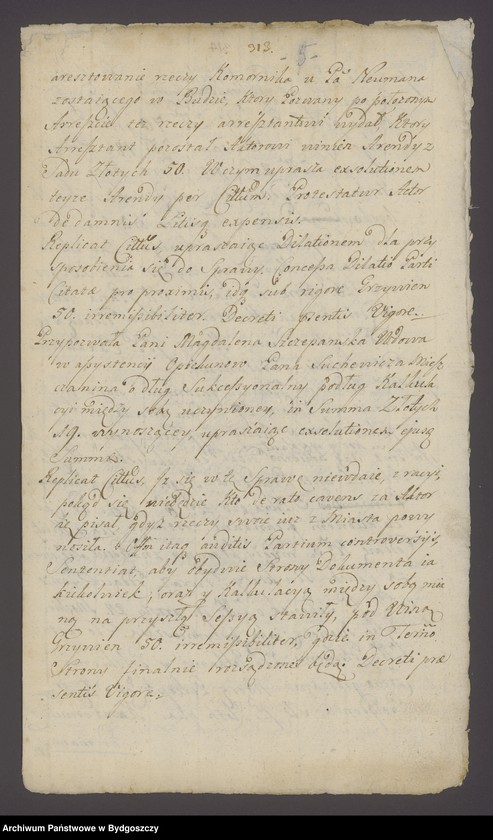 313.
-5-
aresztowanie rzeczy Komornika u Pa Neumana
zostaiącego w Budzie, ktory Pozwany po położonm
Areszcie te rzeczy arresztantowi wydał, Ktory
Arresztant pozostał Aktorowi winien Arendy z
Sadu Złotych 50. W czym uprasza exsolutionem
teyze Arendy per Cittum. Protestatur Actor
de damnis Litisq expensis.
Replicat Cittus, upraszaiąc Dilationem dla przy
sposobienia się do Sprawy. Concessa Dilatio Parti
Citatæ pro proximis, idq sub rigore Grzywien
50. irremissibiliter. Decreti præsentis Vigore.
Przypozwała Pani Magdalena Szczepanska Wdowa
w assystencyi Opiekunow Pana Suchewicza Miesz
czanina o dług Sukcessyonalny podług Kalkula
cyi między Stą uczynioney, in Summa Złotych
wynoszącey, upraszaiąc exsolutionem ejusq
Summæ.
Replicat Cittus, iz się w tę Sprawę niewdaie, z racyi,
pokąd się niebędzie kto de rato cavens za Aktor
kę pisał, gdyż rzeczy swoie iuż z Miasta powy
nosiła. Offm itaq auditis Partium controversijs,
Sententiat, aby obydwie Strony Dokumenta ia
kiekolwiek, oraz y Kalkulacyą między sobą mia
ną na przyszłą Sessyą stawiły, pod Winą
Grzywien 50. irremissibiliter, gdzie in Termo
Strony finalnie rozsądzone będą. Decreti præ
sentis Vigore.
Archiwum Państwowe w Bydgoszczy